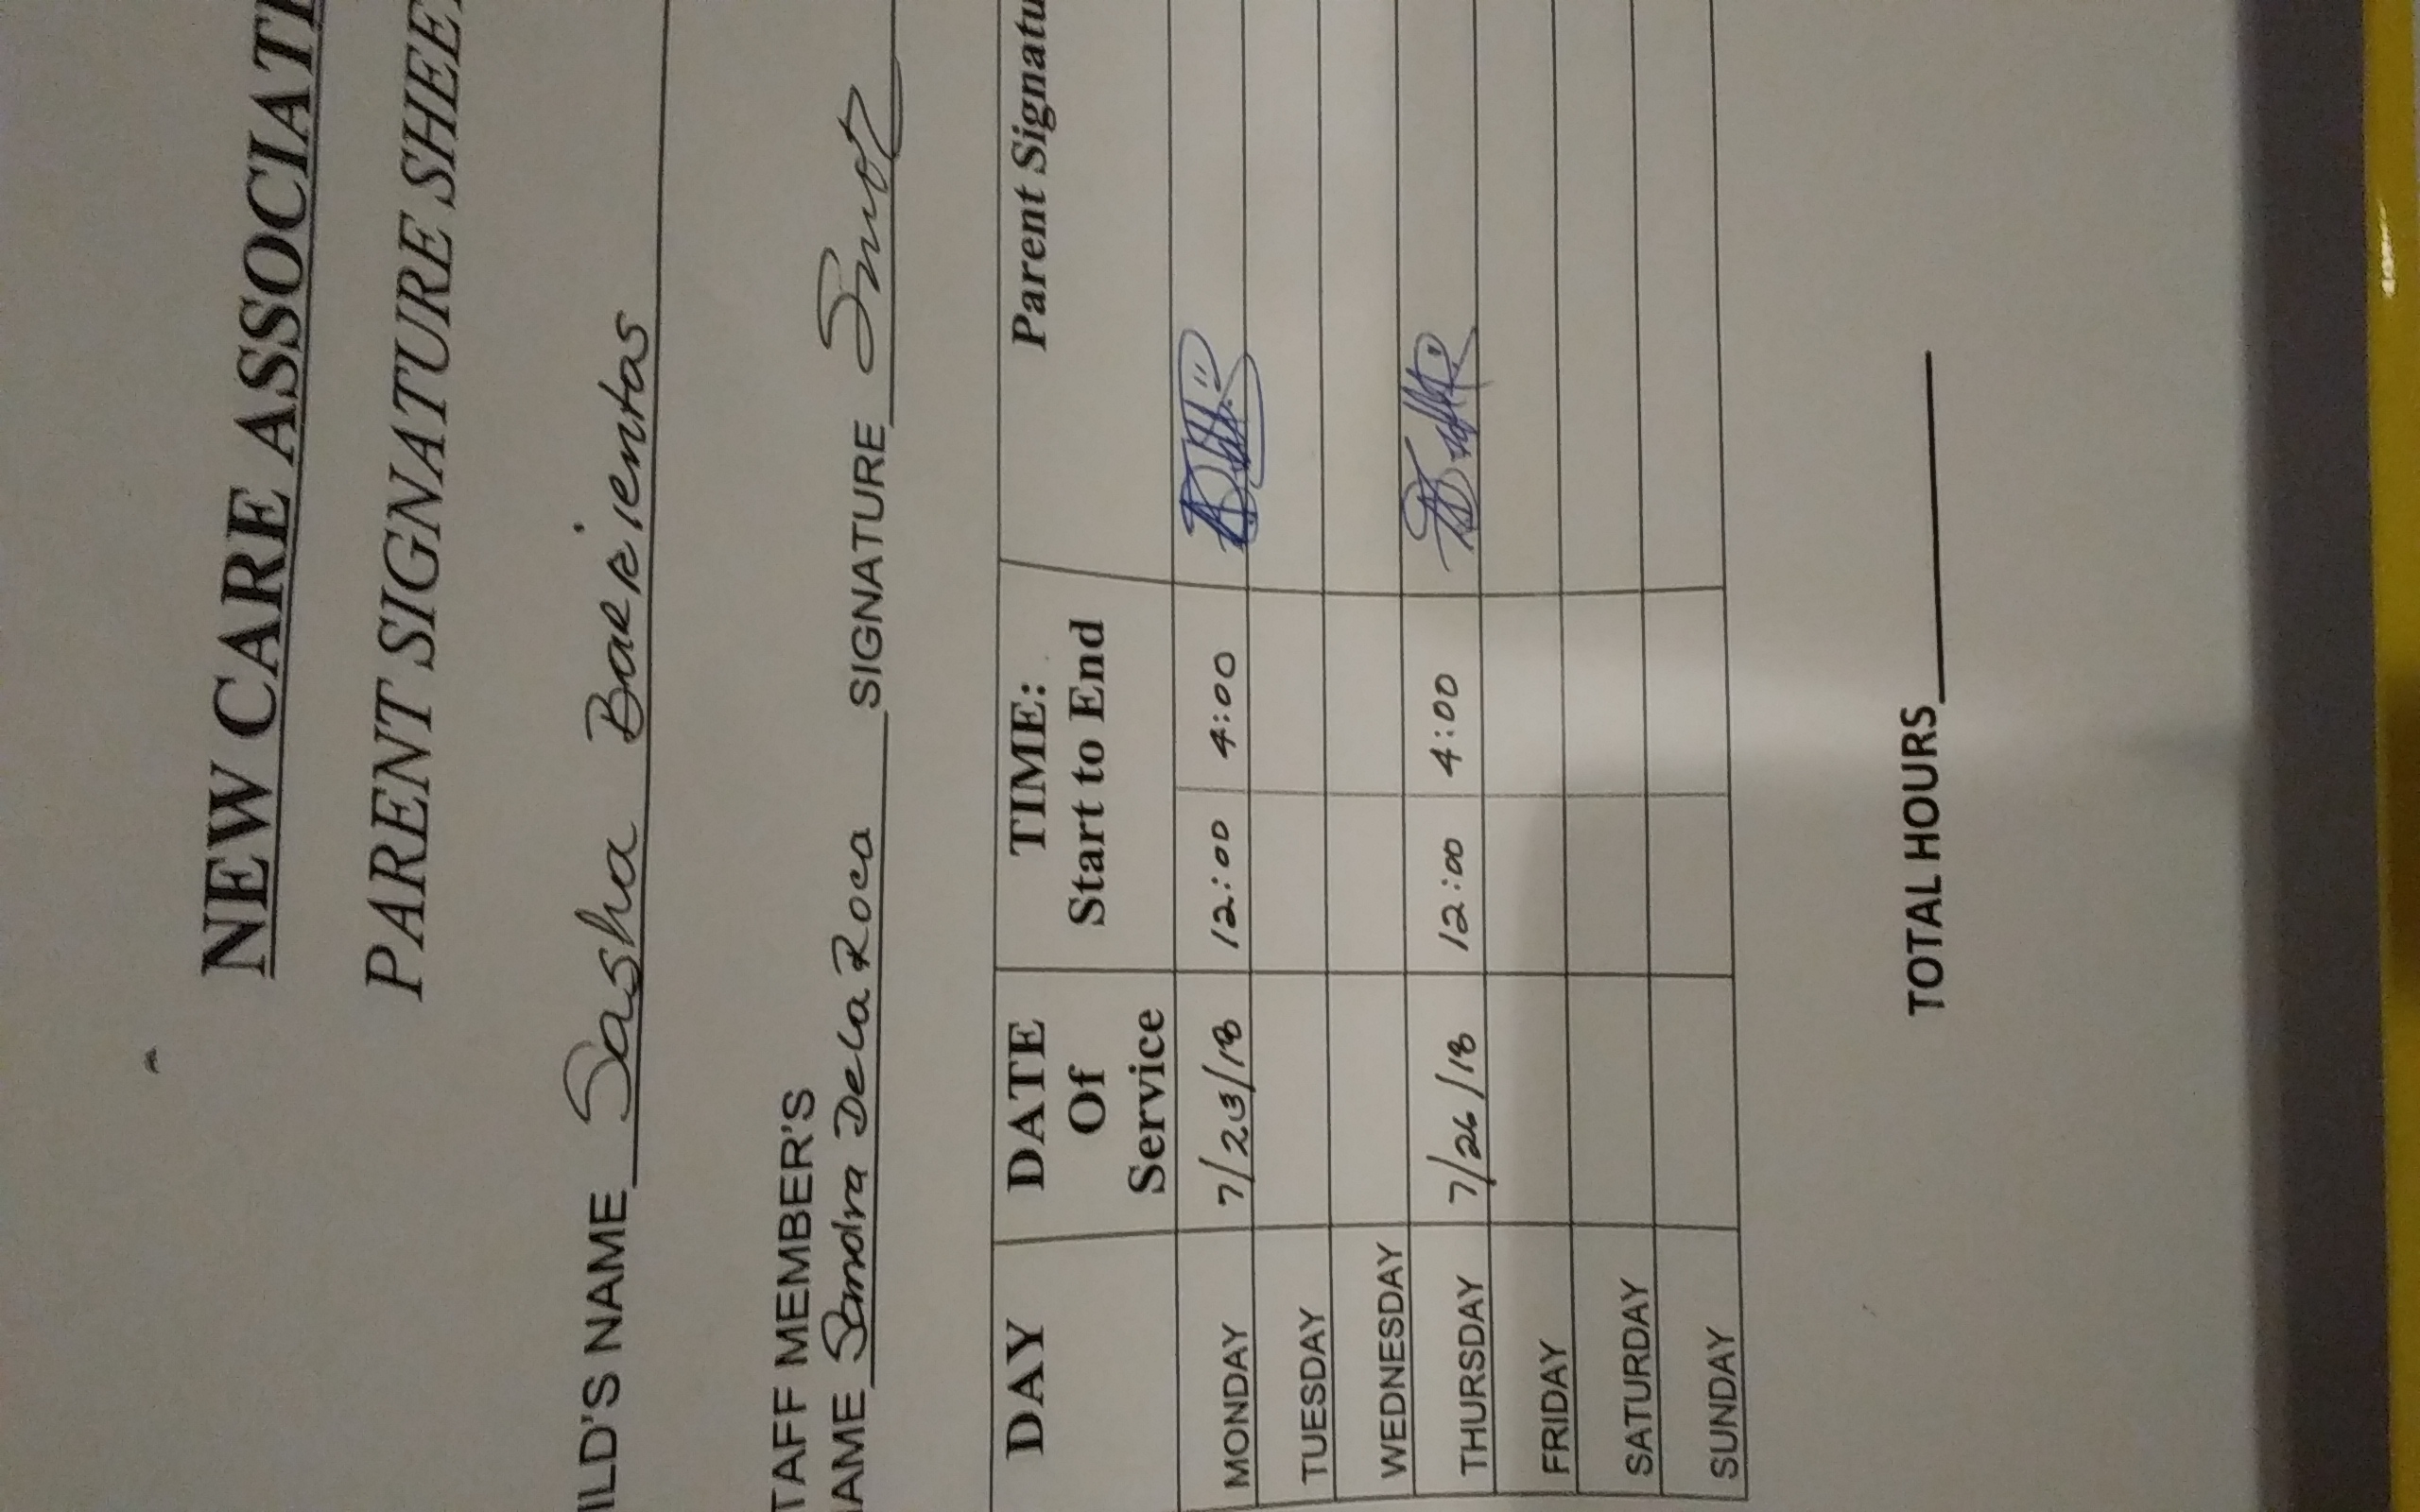 NEW CARE ASSOCIATE
PARENT SIGNATURE SHEET
ILD'S NAME Sasha Barrientos
TAFF MEMBER'S
AME Sandra De La Roca SIGNATURE
DAY DATE Of Service TIME: Start to End Parent Signatu
MONDAY 7/23/18 12:00 4:00
TUESDAY
WEDNESDAY
THURSDAY 7/26/18 12:00 4:00
FRIDAY
SATURDAY
SUNDAY
TOTAL HOURS